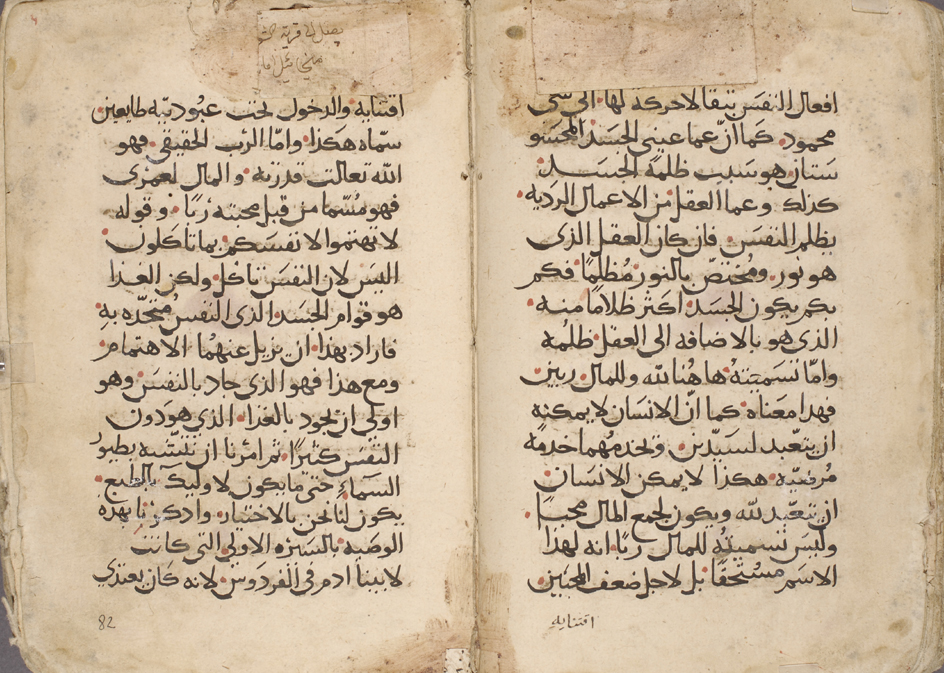 افعال النفس تبقا لاحركة لها الى شى
محمود كما ازّ عما عيني الجسد المحسو
ستان هو سبب ظلمة الجسد
كذلك وعما العقل من الاعمال الرديه
يظلم النفس فان كان العقل الذى
هو نور ومُختصّ بالنور مُظلمًا فكم
بكم يكون الجسد اكثر ظلامًا منه
الذى هو بالاضافه الى العقل ظلمُه
وامّا تسميته هاهُنا لله وللمال ربين
فهدا معَناه كما انّ الانسان لا يمكنه
ان يتعّبد لسيّدين وتخدمهما خدمةً
مُرضيّه هكذا لا يمكن الانسان
ان تتعّبد لله ويكون لجمع المال محبًا
وليس تسميتهُ للمال ربًا انه لهذا
الاسم مستحقًا بل لاجل ضعف المحبين
اقتنايه
اقتنايه والدخول تحت عبُوديّته طايعين
سمّاه هكذا وامّا الرب الحقيقى فهو
الله تعالت قدرته والمال لعمرى
فهو مُسّما من قبل محبته ربًا وقوله
لا تهتموا لانفسكم بما تاكلون
اليس لان النفس تاكل ولكن الغدا
هو قوام الجسد الذى النفس مُتحّده بهِ
فاراد بهذا ان يزيل عنهُما الاهتمام
ومع هذا فهو الذى جاد بالنفس وهو
اولى ان يجود بالغدا الذي هو دون
النفس كثيرًا ثم امرنا ان نتشّبه بطيور
السمآء حتى ما يكون لاوليك بالطبع
يكون لنا نحن بالاختيار واذكرنا بهذه
الوصّيه بالسيره الاولى التى كانت
لابينا ادم فى الفردوس لانه كان يغتدي
82